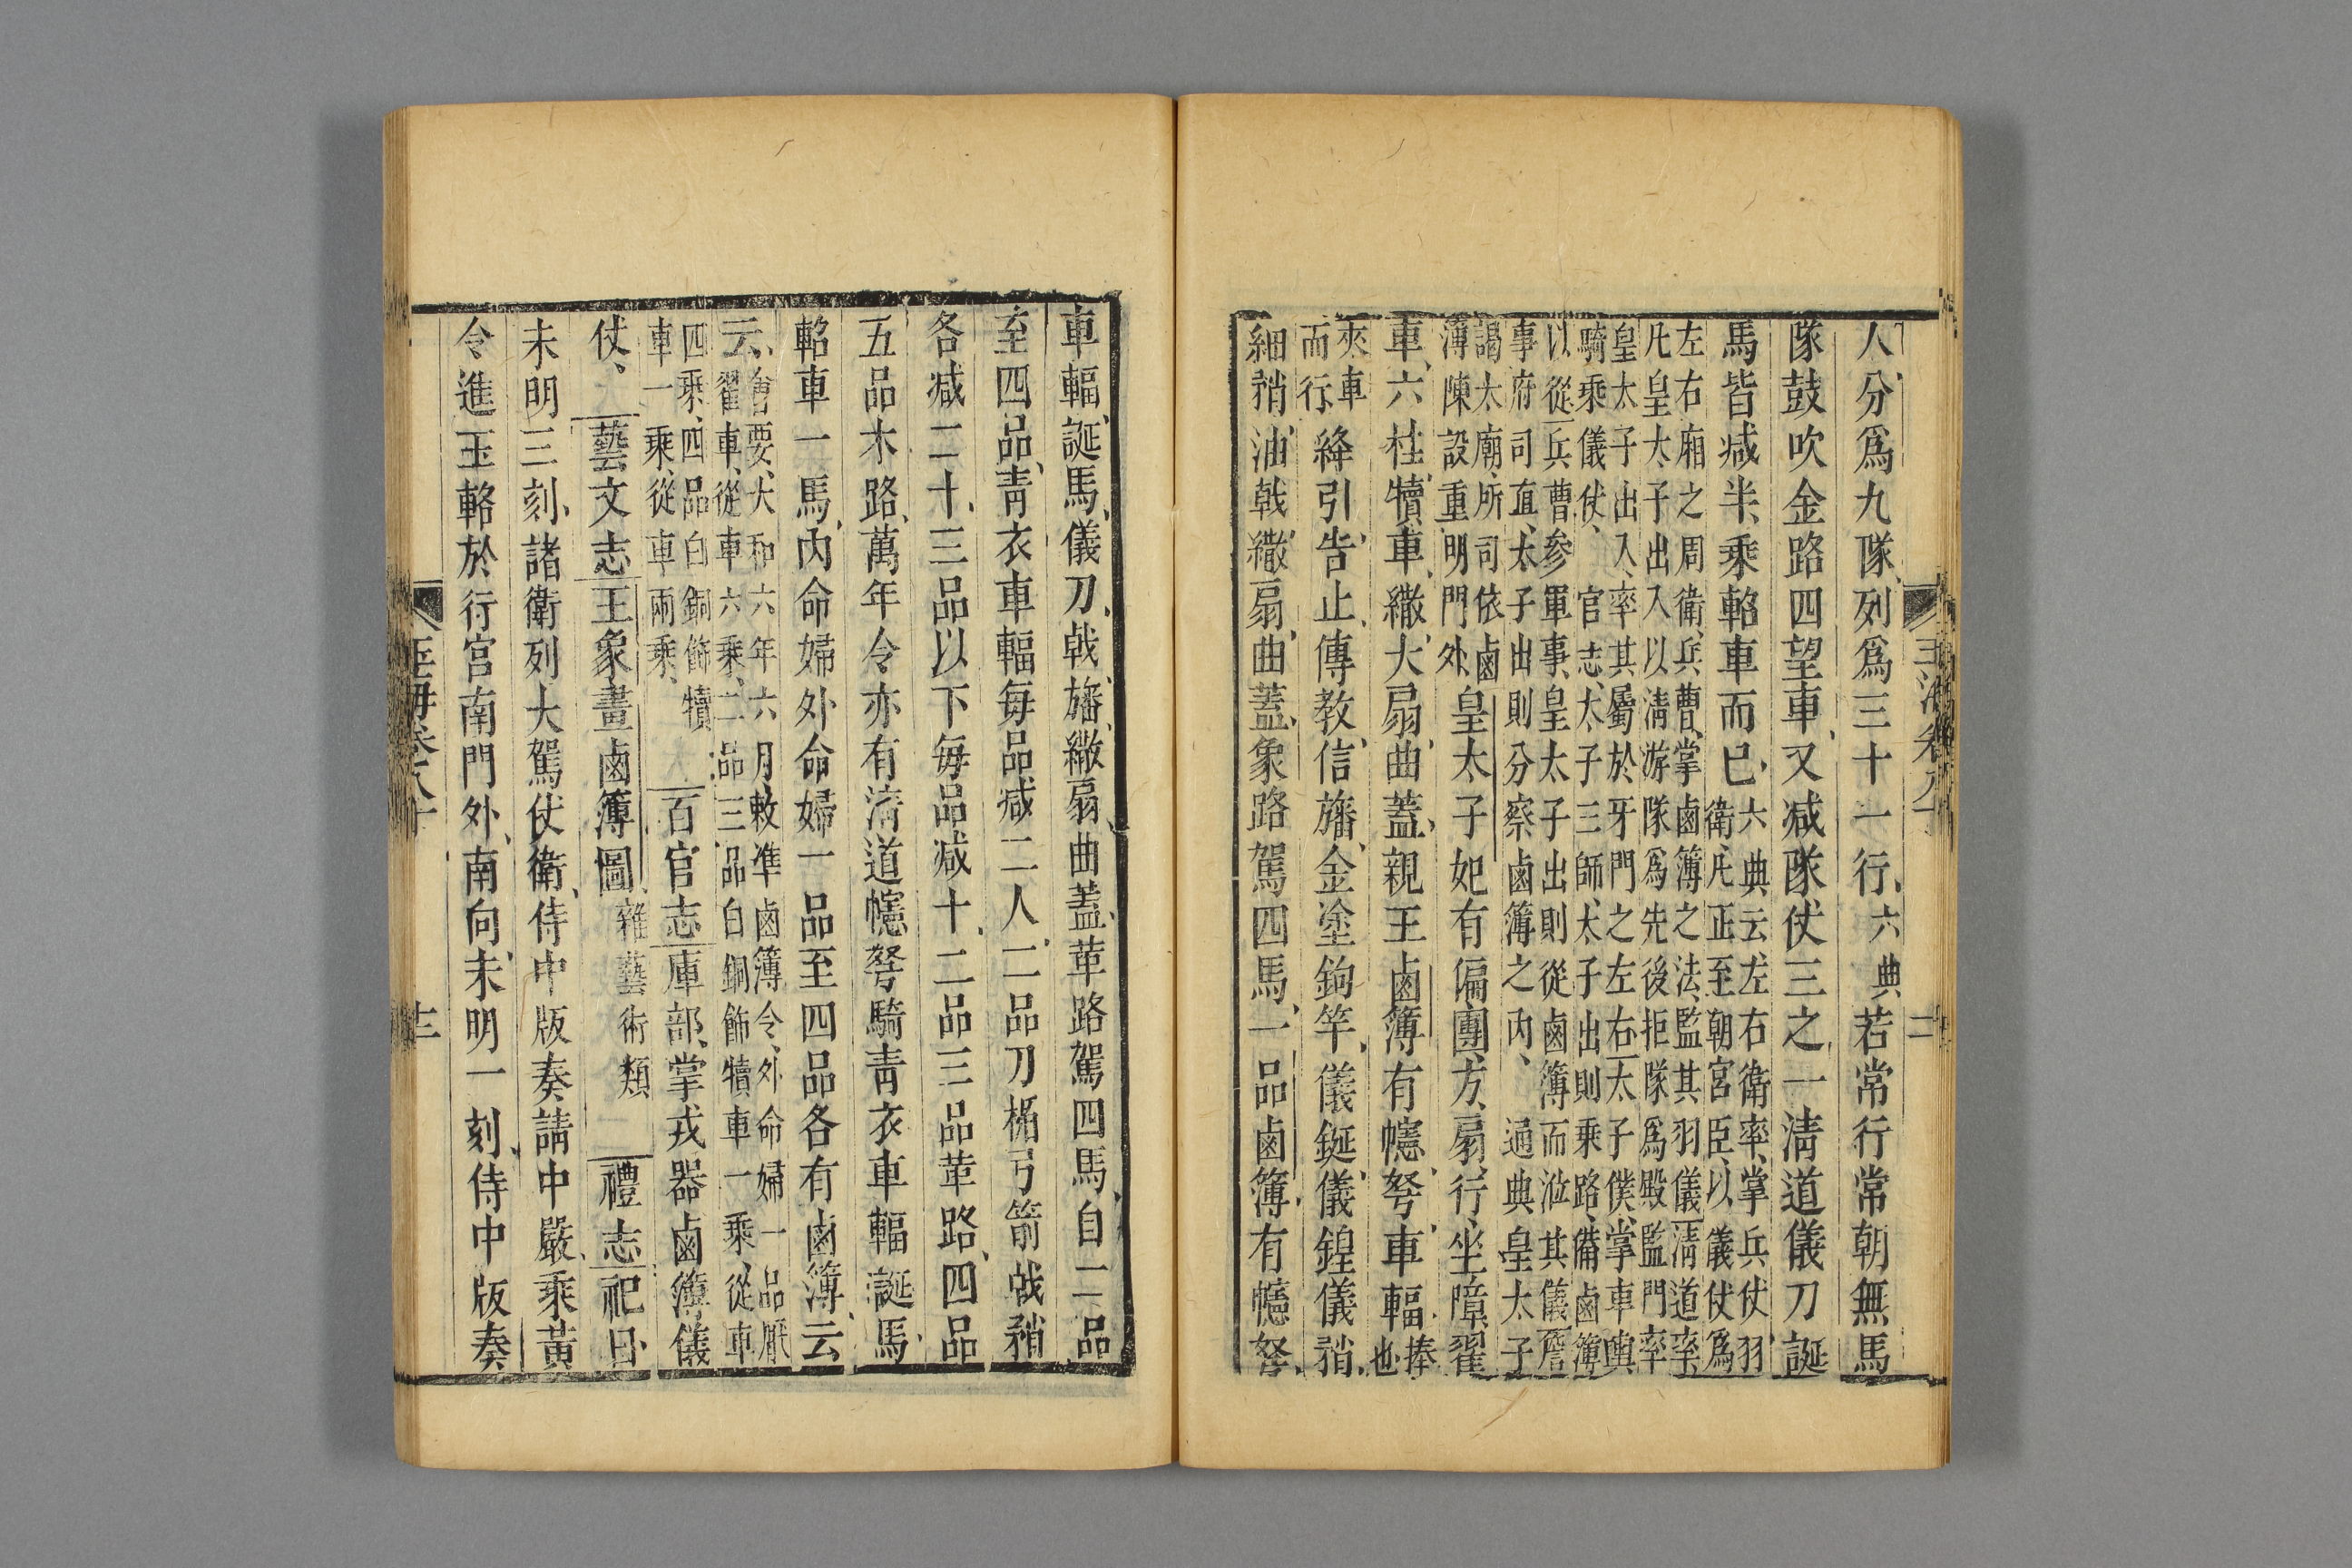 人分爲九隊列爲三十一行六典若常行常朝無馬
隊鼓吹金路四望車又减隊仗三之一淸道儀刀誕
馬皆减半乘軺車而已六典云左右衛率掌兵仗羽
衛凡正至朝宮臣以儀仗爲
左右廂之周衛兵曹掌鹵簿之法監其羽儀淸道率
凡皇太子出入以淸游隊爲先後拒隊爲殿監門率
皇太子出入率其屬於牙門之左右太子僕掌車輿
騎乘儀仗官志太子三師太子出則乘路備鹵簿
以從兵曹參軍事皇太子出則從鹵簿而涖其儀詹
事府司直太子出則分察鹵簿之內通典皇太子
謁太廟所司依鹵
簿陳設重明門外皇太子妃有偏團方扇行坐障翟
車六柱犢車繖大扇曲蓋親王鹵簿有幰弩車輻捧
也
夾車
而行絳引告止傳教信旛金塗鉤竿儀鋋儀鍠儀矟
細矟油戟繖扇曲蓋象路駕四馬一品鹵簿有幰弩
車輻誕馬儀刀戟旛繖扇曲蓋革路駕四馬自二品
至四品靑衣車輻每品减二人二品刀楯弓箭戟矟
各减二十三品以下每品减十二品三品革路四品
五品木路萬年令亦有淸道幰弩騎靑衣車輻誕馬
軺車一馬內命婦外命婦一品至四品各有鹵簿云
云會要大和六年六月敕準鹵簿令外命婦一品厭
翟車從車六乘二品三品白銅飾犢車一乘從車
四乘四品白銅飾犢
車一乘從車兩乘百官志庫部掌戎器鹵簿儀
仗藝文志王象畫鹵簿圖雜藝術類禮志祀日
未明三刻諸衛列大駕仗衛侍中版奏請中嚴乘黃
令進玉輅於行宮南門外南向未明一刻侍中版奏
玉海卷八十